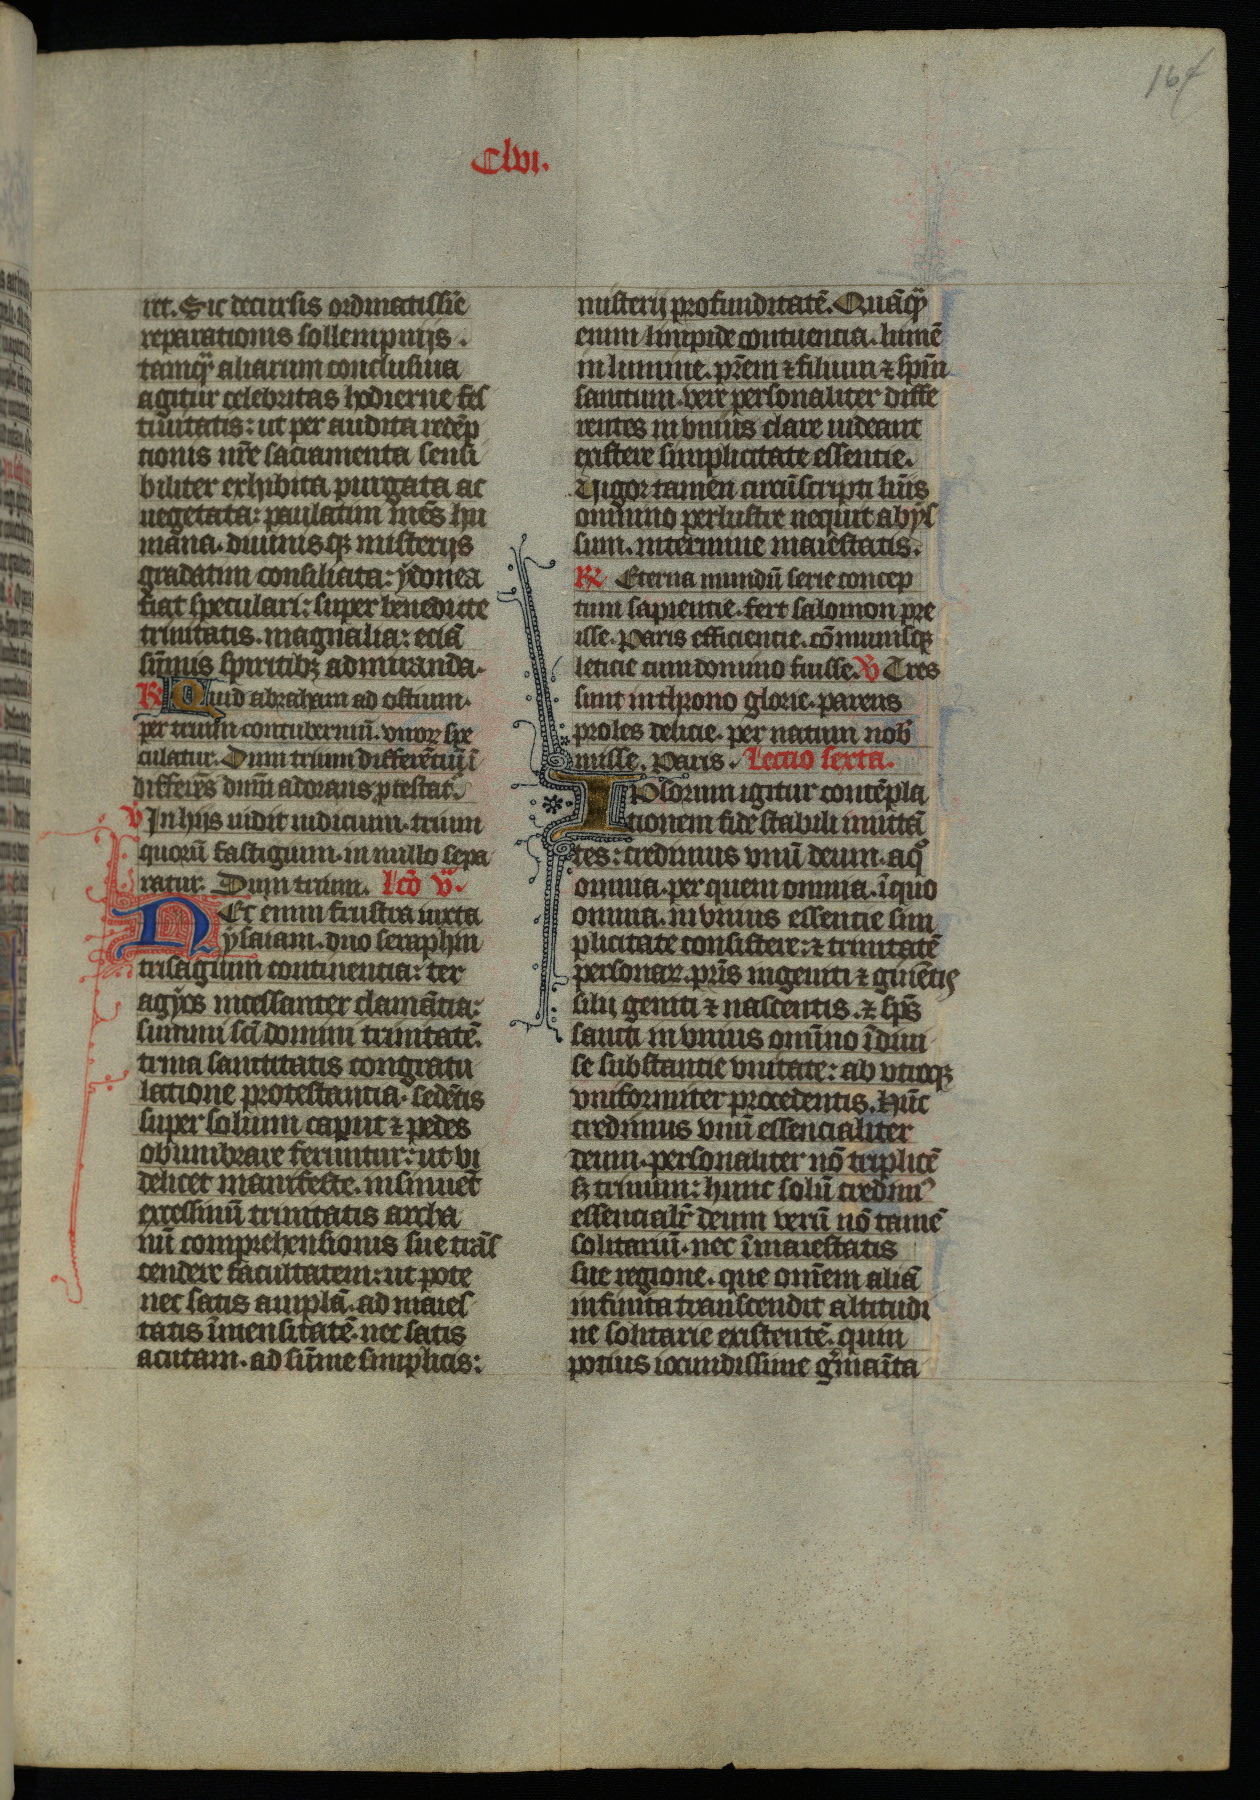 164
Clvi.
ret. Sic decursis ordinatissīe
reparationis sollempnijs.
tamq̄ aliarum conclusiua
agitur celebritas hodierne fes
tiuitatis: ut per audita redēp
tionis nr̄e sacramenta sensi
biliter exhibita purgata ac
uegetata: paulatim mēs hu
mana. diuinisqꝫ misterijs
gradatim consiliata: ydonea
fiat speculari: super benedicte
trinitatis. magnalia: eciā
sūmis spiritibꝫ admiranda.
R̷ Quid abraham ad ostium.
per trium contuberniū. vnor spe
culatur. Dum trium differētiū ī
differēs dnm̄ adorans ꝓtestat̄.
V̷ In hijs uidit iudicium. trium
quorū fastigium. in nullo sepa
ratur. Dum trium. Lcō v̄.
NEc enim frustra iuxta
ysaiam. duo seraphin
trisagium continentia: ter
agyos incessanter clamātia:
summi sc̄i domini trinitatē.
trina sanctitatis congratu
latione protestantia. sedētis
super solium caput ⁊ pedes
obumbrare feruntur: ut vi
delicet manifeste. insinuet̄
excessiuū trinitatis archa
nū comprehensionis sue trās
cendere facultatem: ut pote
nec satis amplā. ad maies
tatis īmensitatē. nec satis
acutam. ad sūme simplicis:
misterij profunditatē. Quāq̄
enim limpide contuentia. lumē
in lumine. pr̄em ⁊ filium ⁊ sp̄m
sanctum. vere personaliter diffe
rentes in vnius clare uideant
existere simplicitate essentie.
Uigor tamen circūscripti lūis
omnino perlustre nequit abys
sum. intermine maiestatis.
R̷ Eterna mundū serie concep
tum sapientie. fert salomon pre
isse. Paris efficientie. cōmunisqꝫ
leticie cum domino fuisse. V̷ Tres
sunt in throno glorie. parens
proles delicie. per natum nob̄
misse. Paris. Lectio sexta.
IPsorum igitur contēpla
tionem fide stabili imittā
tes: credimus vnū deum. a q̊
omnia. per quem omnia. ī quo
omnia. in vnius essentie sim
plicitate consistere: ⁊ trinitatē
personaꝝ. pr̄is ingeniti ⁊ gignētis
filij geniti ⁊ nascentis. ⁊ sp̄s
sancti in vnius omīno īdiui
se substantie vnitate: ab vtroqꝫ
vniformiter procedentis. Hūc
credimus vnū essencialiter
deum. personaliter nō triplicē
sꝫ trinum: hunc solū credimꝰ
essencialr̄ deum verū nō tamē
solitariū. nec ī maiestatis
sue regione. que omēm aliā
infinita transcendit altitudi
ne solitarie existentē. quin
potius iocundissime